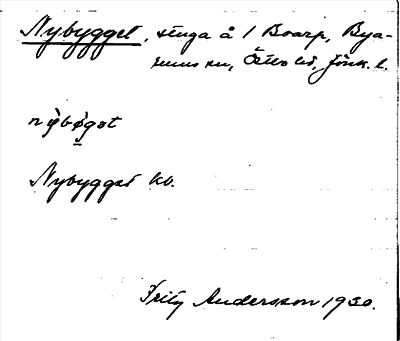 Nybygget, stuga å 1 Boarp, Bya-
rums sn, Östbo hd, Jönk. l.
nỳbø̀gət
Nybygget kb.
Fritz Andersson 1930.